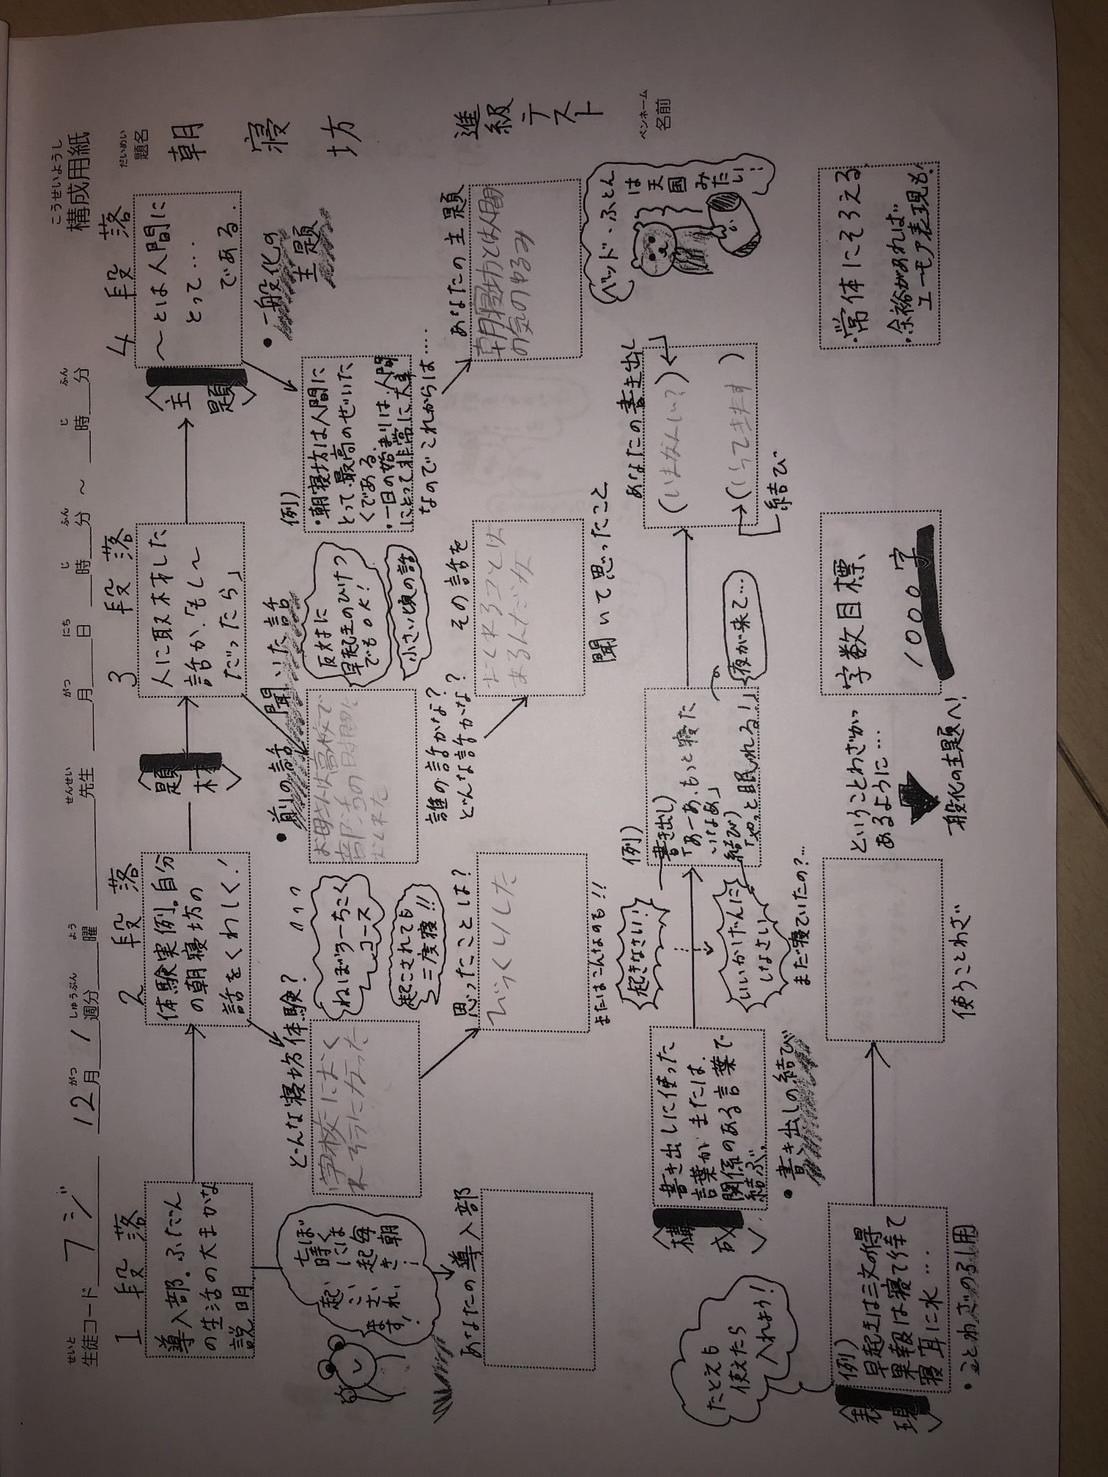 こうせいようし
構成用紙
せいと
生徒コード フジ 12月 1週分 曜 先生 月 日 時 分 ～ 時 分
がつ しゅうぶん よう せんせい がつ にち じ ふん じ ふん
だいめい
題名
朝寝坊
進級テスト
ペンネーム
名前
1段落
導入部。ふだん
の生活の大まかな
説明
ぼくは毎朝
七時には
起きます!
あなたの導入部
2段落
体験実例。自分
の朝寝坊の
話をくわしく!
どんな寝坊体験?
学校におく
れそうになった
ねぼう→ちこく
コース
起こされても
三度寝!!
思ったことは?
びっくりした
〈題材〉
3段落
人に取材した
話か「もし～
だったら」
・前の話 聞いた話
お母さんは高校で
部活の日时間に
おくれた
反対に
早起きのひけつ
でもOK!
小さい頃の話
誰の話かな?
どんな話かな?
その話を
聞いて思ったこと
おくれることは
あるんだな
〈主題〉
4段落
～とは人間に
とって…
である。
・一般化の
主題
例)
・朝寝坊は人間に
とって最高のぜいた
くである。
・一日の始まりは、人間
にとって非常に大事
なのでこれからは…
あなたの主題
朝寝坊とは人間
の気のゆるみ
ベッド・ふとん
は天国みたい!
〈構成〉
書き出しに使った
言葉か または、
関係のある言葉で
結ぶ。
・書き出しの結び
またはこんなのも!!
起きなさい!
いいかげんに
しなさい!
まだ寝ていたの?…
例)
書き出し)
「あーあ、もっと寝た
いなあ」
結び)
「やっと眠れる!」
夜が来て…
あなたの書き出し
(いまなんじ?)
(いってきます)
結び
たとえも
使えたら
入れよう!
〈表現〉
例)
早起きは三文の得
果報は寝て待て
寝耳に水…
・ことわざの引用
使うことわざ
ということわざが
あるように…
一般化の主題へ!
字数目標、
1000字
・常体にそろえる
・余裕があれば
ユーモア表現も!